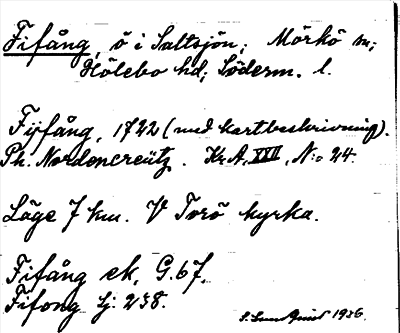 Fifång, ö i Saltsjön; Mörkö sn;
Hölebo hd; Söderm. l.
Fijfång, 1722 (med kartbeskrivning).
Ph. Nordencreütz. Kr.A. XVII, N:o 24.
Läge 7 km. V Torö kyrka.
Fifång ek. G.67.
Fifong Lj: 238.
S. 1926.